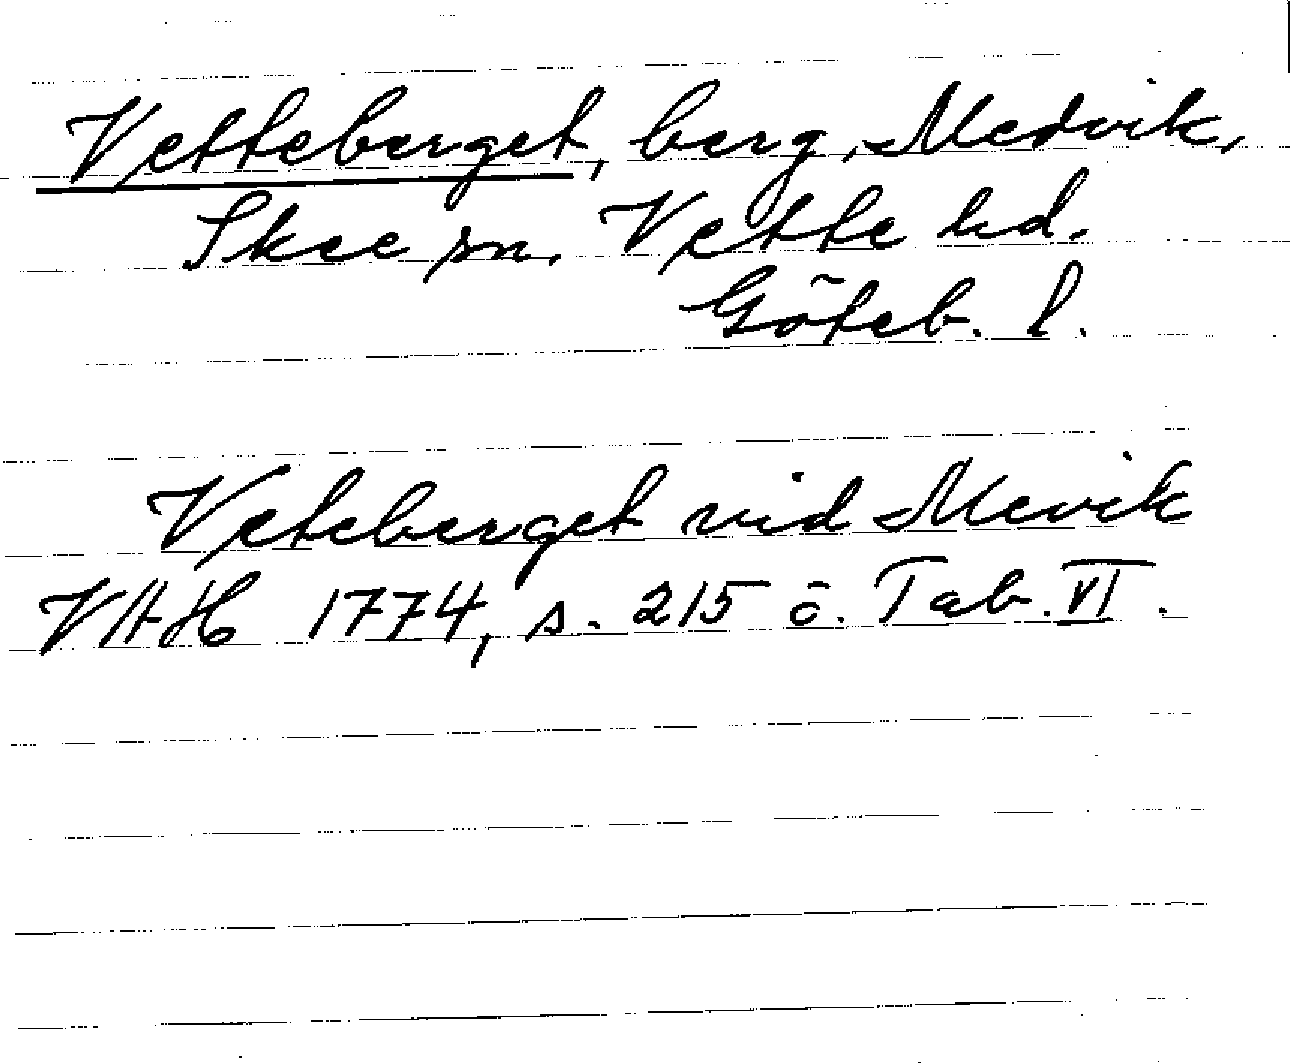 Vetteberget, berg, Medvik,
Skee sn. Vette hd.
Göteb. l.
Veteberget vid Mevik
VAH 1774, s. 215 o. Tab. VI.